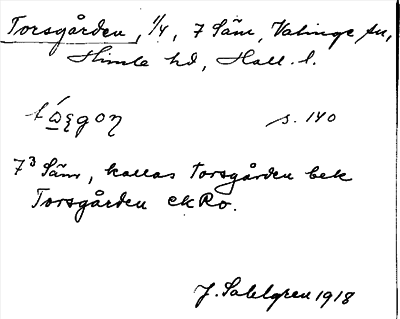 Torsgården, 1/4, 7 Säm, Valinge sn,
Himle hd, Hall. l.
s. 140
7³ Säm, kallas Torsgården bek
Torsgården ekRo.
J. Sahlgren 1918